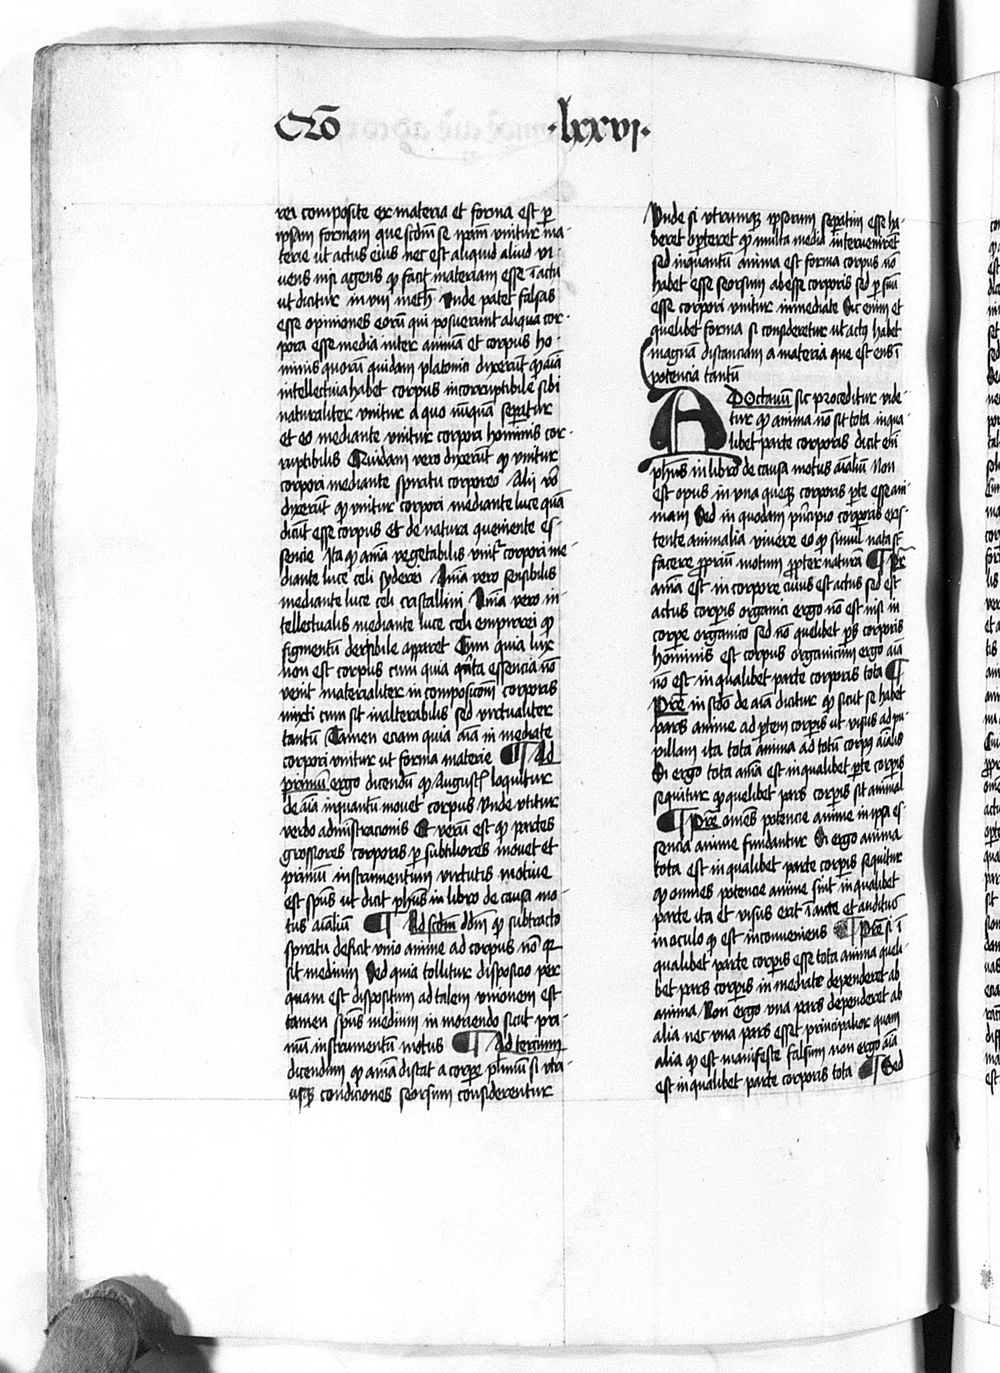 Questio · lxxvi ·
rei composite ex materia et forma est per
ipsam formam que scdm se ipsam vnitur ma-
terie ut actus eius nec est aliquid aliud vni-
uens nisi agens qd facit materiam esse ī actu
ut dicitur in viii meth. Vnde patet falsas
esse opiniones eorū qui posuerunt aliqua cor-
pora esse media inter animā et corpus ho-
minis quorū quidam platonici dixerūt qd aīa
intellectuia habet corpus incorruptibile sibi
naturaliter vnitur a quo nūquā sepatur
et eo mediante vnitur corpora hominis cor-
ruptibilis Quidam vero dixerūt qd vnitur
corpori mediante spiritu corporeo Alii vō
dixerūt qd vnitur corpori mediante luce quā
dicūt esse corpus et de natura quinte es-
sencie Ita qd aīma vegetabilis vnitr corpori me-
diante luce celi syderei Aīma vero sensibilis
mediante luce celi cristallini Aīma vero in-
tellectualis mediante luce celi empirrei qd
figmentū derisibile apparet Tum quia lux
non est corpus tum quia quīta essencia nō
venit materialiter in compositioni corporis
mixti cum sit inalterabilis sed virtualiter
tantū Tamen eciam quia aīa in mediate
corpori vnitur ut forma materie ¶ Ad
primū ergo dicendū qd Augusts loquitur
de aīa inquantū mouet corpus vnde vtitur
verbo admīstracionis Et verū est qd partes
grossiores corporis per subtiliores mouet et
primū instrumentum virtutis motiue
est spūs ut dicit phūs in libro de causa mo-
tus aīaliū ¶ Ad scdm ddm qd subtracto
spiritu deficit vnio anime ad corpus nō qz
sit medium Sed quia tollitur disposicio per
quam est dispositum ad talem vnionem est
tamen spūs medium in mouendo sicut pri-
mū instrumentū motus ¶ Ad tercium
dicendum qd aīma distat a corpe plimū si vtri-
usqz condiciones seorsum considerentur
Vnde si vtrumqz ipsorum sepatim esse ha-
beret oporteret qd multa media interuenirēt
sed inquantū anima est forma corpus nō
habet esse seorsum ab esse corporis sed per suū
esse corpori vnitur inmediate Sic enim et
quelibet forma si consideretur ut actus habet
magnā distanciam a materia que est ens ī
potencia tantū
AD Octauū sic proceditur vide-
tur qd anima nō sit tota in qua-
libet parte corporis dicit enī
phūs in libro de causa motus aīaliū Non
est opus in vna queqz corporis pte esse ani-
mam Sed in quodam principio corporis exis-
tente animalia viuere eo qd simul nata st
facere propriū motum propter naturā ¶ Pr
aīma est in corpore cuius est actus sed est
actus corpis organici ergo nō est nisi in
corpe organico sed nō quelibet ps corporis
hominis est corpus organicum ergo aīa
nō est in qualibet parte corporis tota ¶
Pree in scdo de aīa dicitur qd sicut se habet
pars anime ad ptem corpis ut visus ad pu-
pillam ita tota anima ad totū corpus aīalis
Si ergo tota aīma est in qualibet pte corpis
sequitur qd quelibet pars corpis sit animal
¶ Pree omēs potencie anime in ipsa es-
sencia anime fundantur Si ergo anima
tota est in qualibet parte corpis sequitur
qd omnes potencie anime sint in qualibet
parte ita et visus erit ī aure et auditus
in oculo qd est inconueniens ¶ Pree si ī
qualibet parte corpis esse tota anima queli-
bet pars corpis in mediate dependeret ab
anima Non ergo vna pars dependeret ab
alia nec vna pars esset principalior quam
alia qd est manifeste falsum non ergo aīa
est in qualibet parte corporis tota ¶ Sed